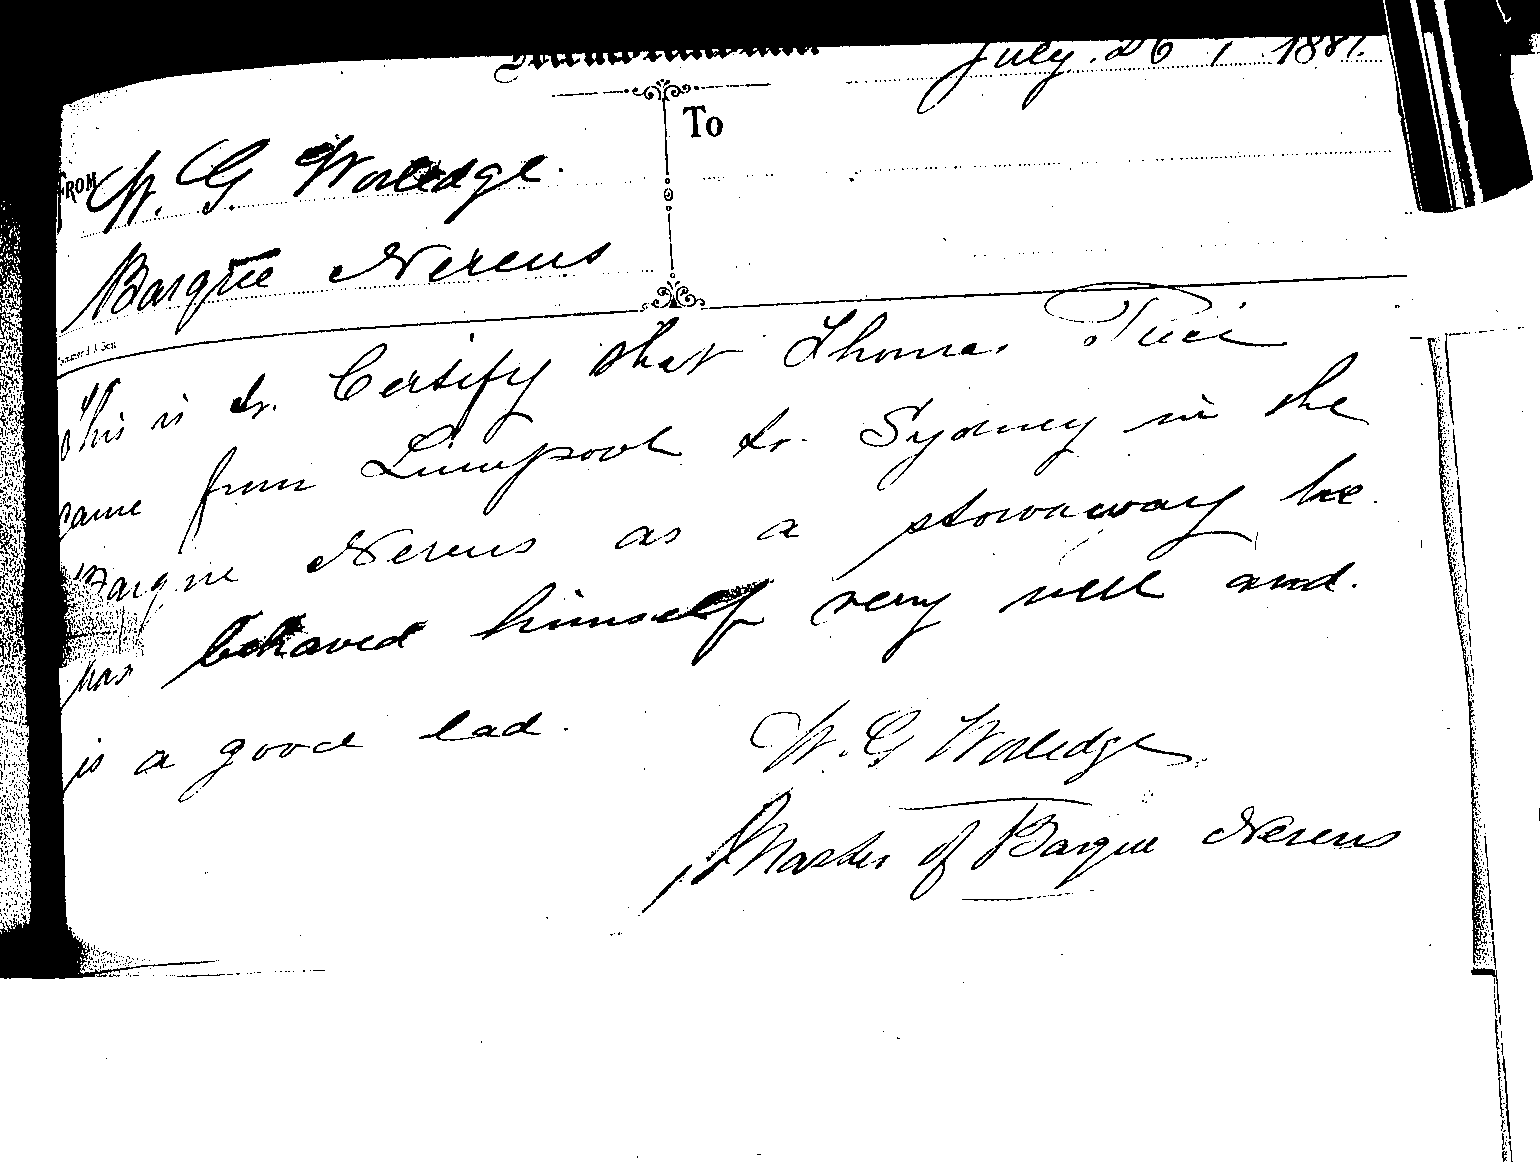 Memorandum
July. 26, 1887.
FROM W. G Worledge.
To
Barque Nereus
This is to. Certify that Thomas
came from Liverpool to. Sydney in the
Barque Nereus as a stowaway he
has behaved himself very well and.
is a good lad.
W. G Worledge
Master of Barque Nereus